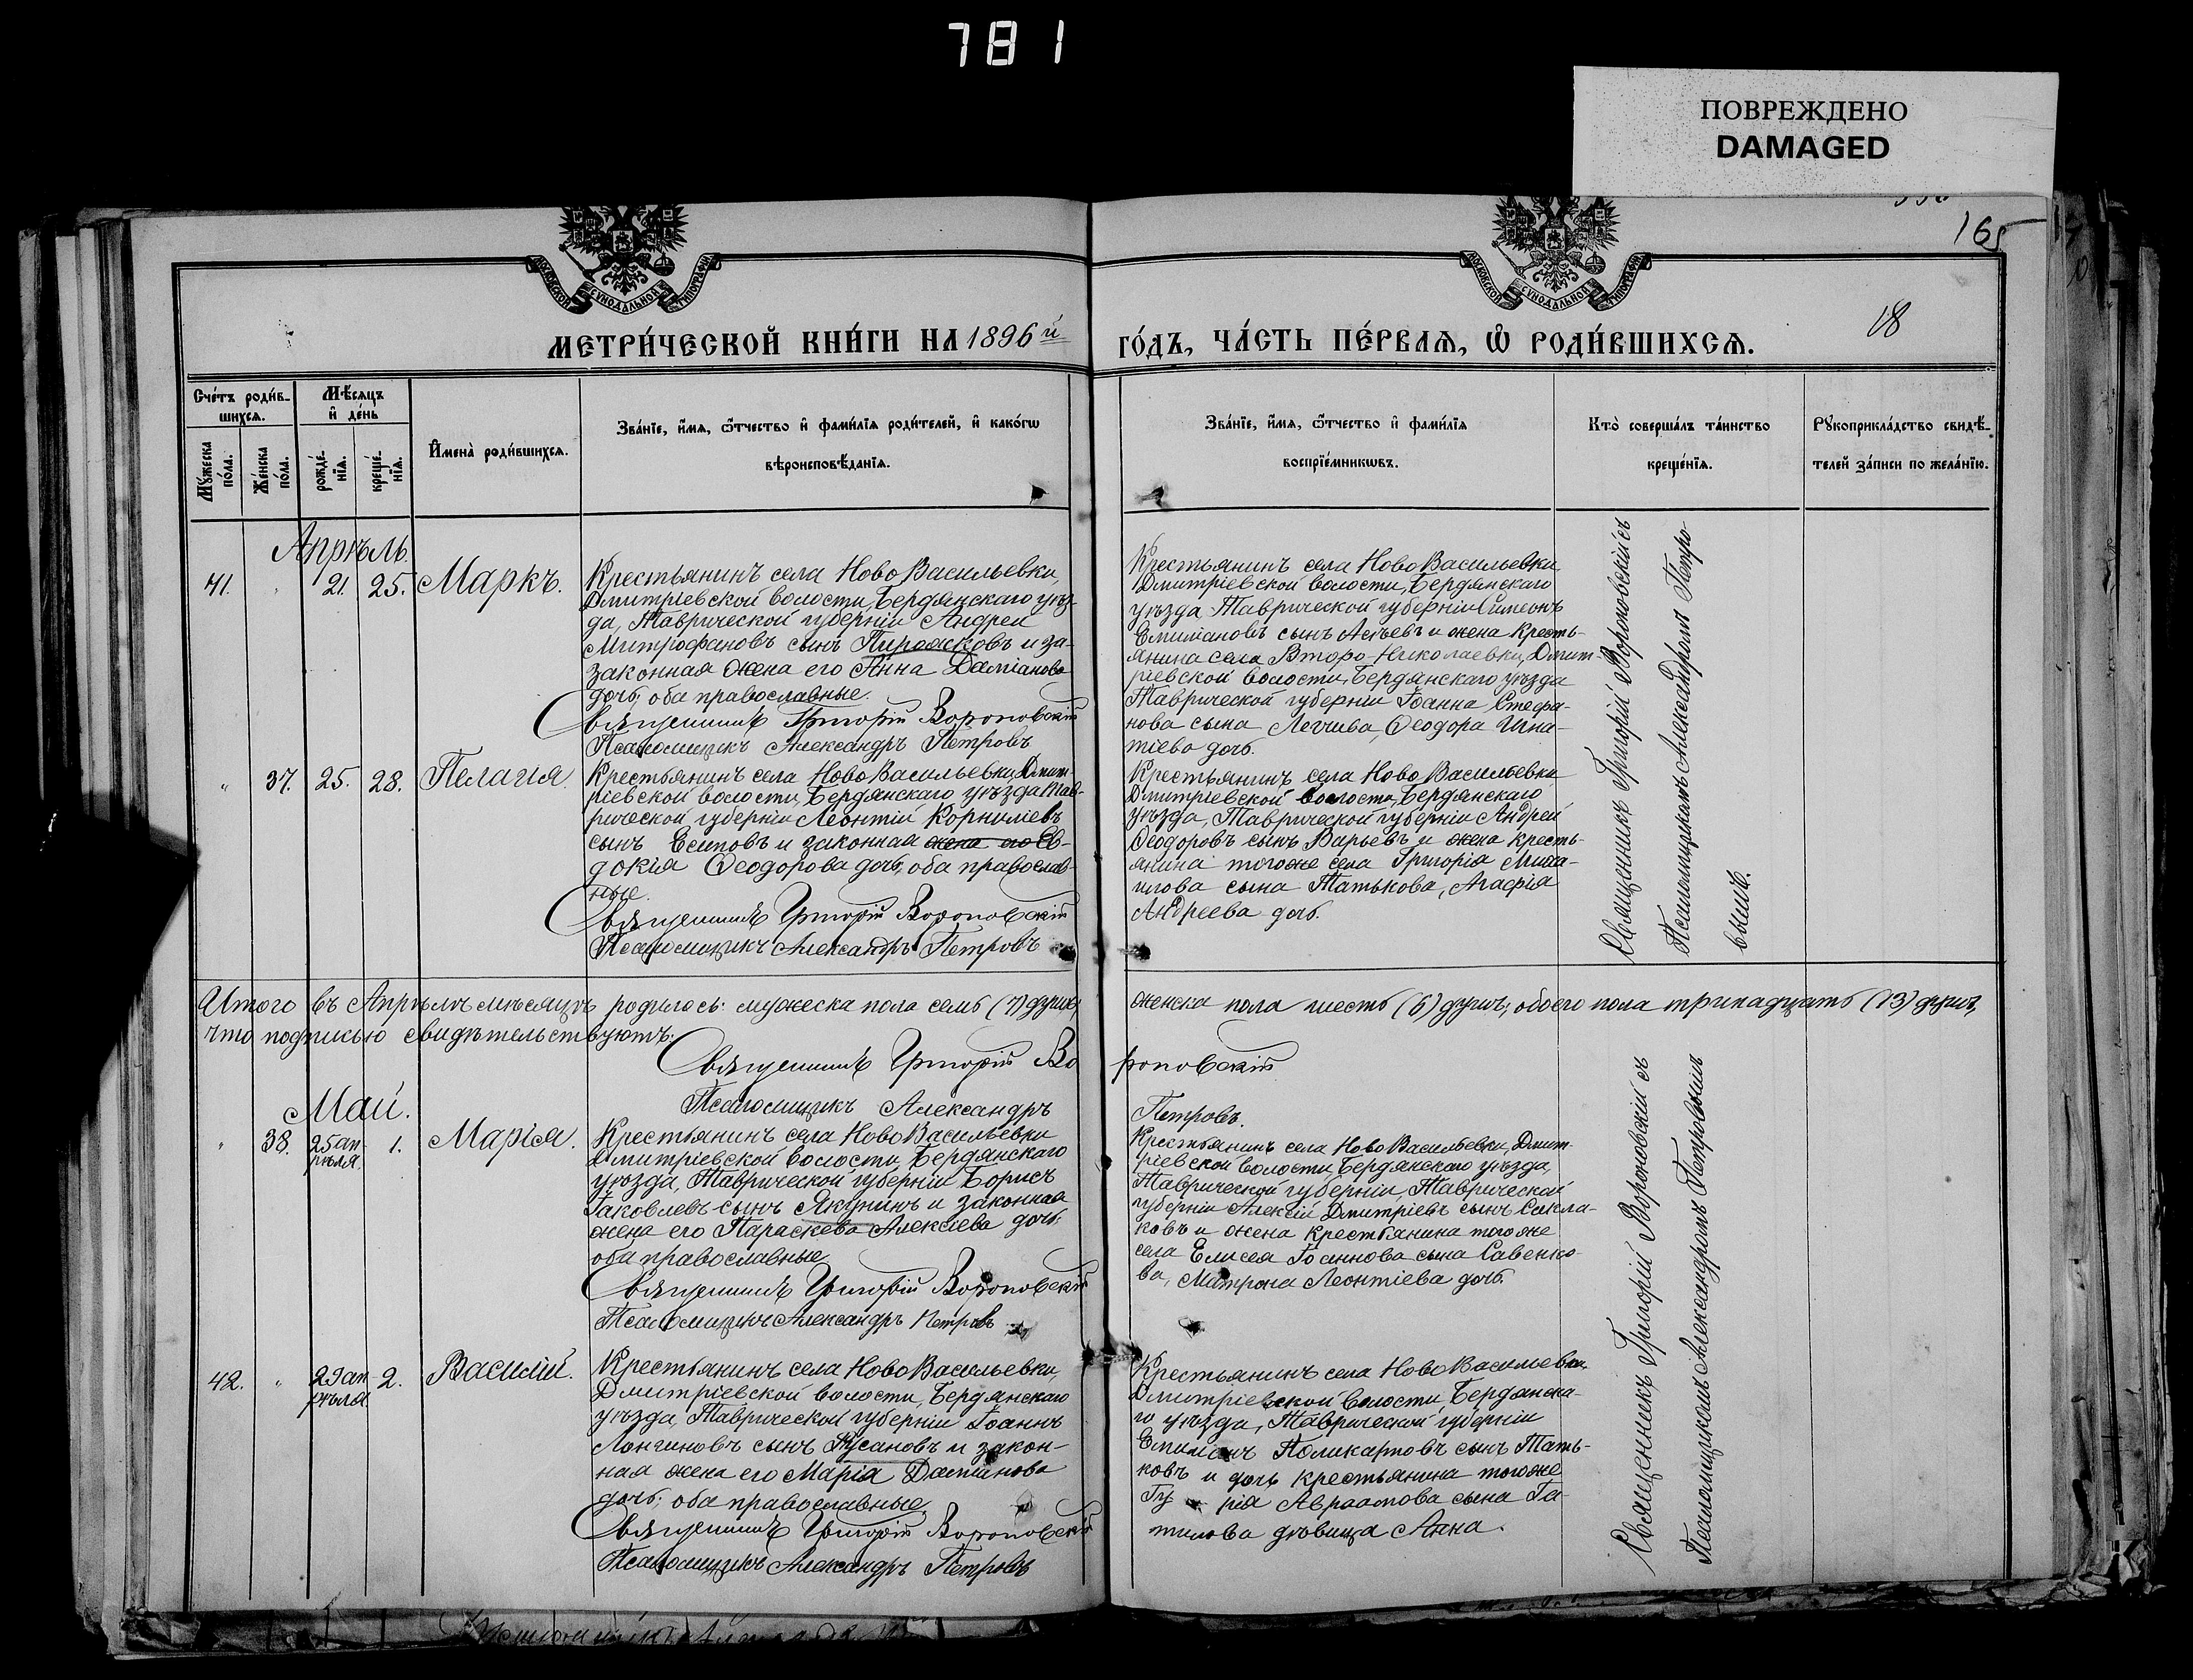 781
ПОВРЕЖДЕНО
DAMAGED
165
18
МОСКОВСКОЙ СѴНОДАЛЬНОЙ ТИПОГРАФІИ
МОСКОВСКОЙ СѴНОДАЛЬНОЙ ТИПОГРАФІИ
МЕТРИ́ЧЕСКОЙ КНИ́ГИ НА 1896й
ГО́ДЪ, ЧА́СТЬ ПЕ́РВАѦ, Ѡ҆ РОДИ́ВШИХСѦ.
Сче́тъ роди́в-
шихсѧ.
Мѣ́сѧцъ
и҆ де́нь
Мꙋ́жеска
по́ла.
Же́нска
по́ла.
рожде́-
нїѧ.
креще́-
нїѧ.
И҆мена̀ роди́вшихсѧ.
Зва́нїе, и҆́мѧ, ѻ҆́тчество и҆ фами́лїѧ роди́телей, и҆ како́гѡ
вѣроисповѣ́данїѧ.
Зва́нїе, и҆́мѧ, ѻ҆́тчество и҆ фами́лїѧ
воспрїе́мникѡвъ.
Кто̀ соверша́лъ та́инство
креще́нїѧ.
Рꙋкоприкла́дство свидѣ́-
телей за́писи по жела́нїю.
Апрѣль.
41. " 21. 25. Маркъ.
Крестьянинъ села НовоВасильевки,
Дмитріевской волости, Бердянскаго уѣз-
да, Таврической губерніи Андрей
Митрофановъ сынъ Пирожковъ и за-
законная жена его Анна Даміанова
дочь; оба православные.
Священникъ Григорій Вороновскій
Псаломщикъ Александръ Петровъ
Крестьянинъ села НовоВасильевки
Дмитріевской волости, Бердянскаго
уѣзда Таврической губерніи Симеонъ
Емиліановъ сынъ и жена кресть-
янина села Второ-Николаевки, Дмит-
ріевской волости, Бердянскаго уѣзда
Таврической губерніи Іоанна Стефа-
нова сына Ѳеодора Игна-
тіева дочь.
" 37. 25. 28. Пелагія.
Крестьянинъ села НовоВасильевки, Дмит-
ріевской волости, Бердянскаго уѣзда Тав-
рической губерніи Леонтій Корниліевъ
сынъ Есиповъ и законная жена его Ев-
докія Ѳеодорова дочь, оба православ-
ные.
Священникъ Григорій Вороновскій
Псаломщикъ Александръ Петровъ
Крестьянинъ села НовоВасильевки
Дмитріевской волости, Бердянскаго
уѣзда, Таврической губерніи Андрей
Ѳеодоровъ сынъ Варьевъ и жена кресть-
янина тогоже села Григорія Миха-
илова сына Татькова, Агафія
Андреева дочь.
Священникъ Григорій Вороновскій съ
Псаломщикомъ Александромъ Петро-
вымъ.
Итого въ Апрѣлѣ мѣсяцѣ родилось: мужеска пола семь (7) душъ, женска пола шесть (6) душъ; обоего пола тринадцать (13) душъ,
что подписью свидѣтельствуютъ:
Священникъ Григорій Вороновскій
Псаломщикъ Александръ Петровъ.
Май.
" 38. 25 ап- 1. Марія.
рѣля.
Крестьянинъ села НовоВасильевки
Дмитріевской волости, Бердянскаго
уѣзда, Таврической губерніи Борисъ
Іаковлевъ сынъ Якунинъ и законная
жена его Параскева Алексіева дочь;
оба православные
Священникъ Григорій Вороновскій
Псаломщикъ Александръ Петровъ
Крестьянинъ села НовоВасильевки, Дмит-
ріевской волости, Бердянскаго уѣзда,
Таврической губерніи, Таврической
губерніи Алексій Дмитріевъ сынъ Сакла-
ковъ и жена крестьянина тогоже
села Елисея Іоаннова сына Савенко-
ва, Матрона Леонтіева дочь.
42. " 29 ап- 2. Василій.
рѣля
Крестьянинъ села НовоВасильевки,
Дмитріевской волости, Бердянскаго
уѣзда, Таврической губерніи Іоаннъ
Лонгиновъ сынъ Русановъ и закон-
ная жена его Марія Даміанова
дочь; оба православные
Священникъ Григорій Вороновскій
Псаломщикъ Александръ Петровъ
Крестьянинъ села НовоВасильевки,
Дмитріевской волости, Бердянска-
го уѣзда, Таврической губерніи
Емиліанъ Поликарповъ сынъ Тать-
ковъ и дочь крестьянина тогоже
Гурія Авраамова сына Га-
тилова дѣвица Анна.
Священникъ Григорій Вороновскій съ
Псаломщикомъ Александромъ Петровымъ